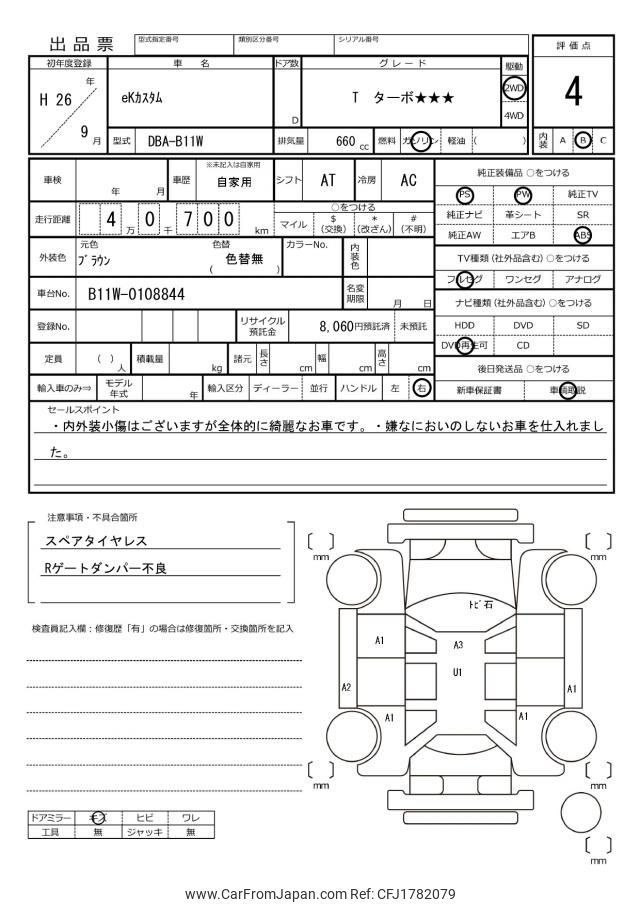 出品票
型式指定番号 類別区分番号 シリアル番号
評価点
初年度登録 車名 ドア数 グレード 駆動
H 26 年 eKカスタム D T ターボ★★★ 2WD 4
9 月 4WD
型式 DBA-B11W 排気量 660 cc 燃料 ガソリン 軽油 ( ) 内装 A B C
車検 年 月 車歴 ※未記入は自家用 自家用 シフト AT 冷房 AC
純正装備品 ○をつける
PS PW 純正TV
純正ナビ 革シート SR
純正AW エアB ABS
走行距離 4 万 0 千 7 0 0 km ○をつける
マイル $ (交換) * (改ざん) # (不明)
外装色 元色 ブラウン 色替 ( 色替無 ) カラーNo. 内装色
TV種類 (社外品含む) ○をつける
フルセグ ワンセグ アナログ
車台No. B11W-0108844 名変期限 月 日
ナビ種類 (社外品含む) ○をつける
登録No. リサイクル預託金 8,060円預託済 未預託
HDD DVD SD
DVD再生可 CD
定員 ( ) 人 積載量 kg 諸元 長さ cm 幅 cm 高さ cm
後日発送品 ○をつける
輸入車のみ⇒ モデル年式 年 輸入区分 ディーラー 並行 ハンドル 左 右
新車保証書 車輌取説
セールスポイント
・内外装小傷はございますが全体的に綺麗なお車です。・嫌なにおいのしないお車を仕入れまし
た。
注意事項・不具合箇所
スペアタイヤレス
Rゲートダンパー不良
検査員記入欄：修復歴「有」の場合は修復箇所・交換箇所を記入
[ ] mm [ ] mm
トビ石
A1 A3
U1
A2 A1
A1 A1
[ ] mm [ ] mm
[ ] mm
ドアミラー キズ ヒビ ワレ
工具 無 ジャッキ 無
www.CarFromJapan.com Ref: CFJ1782079